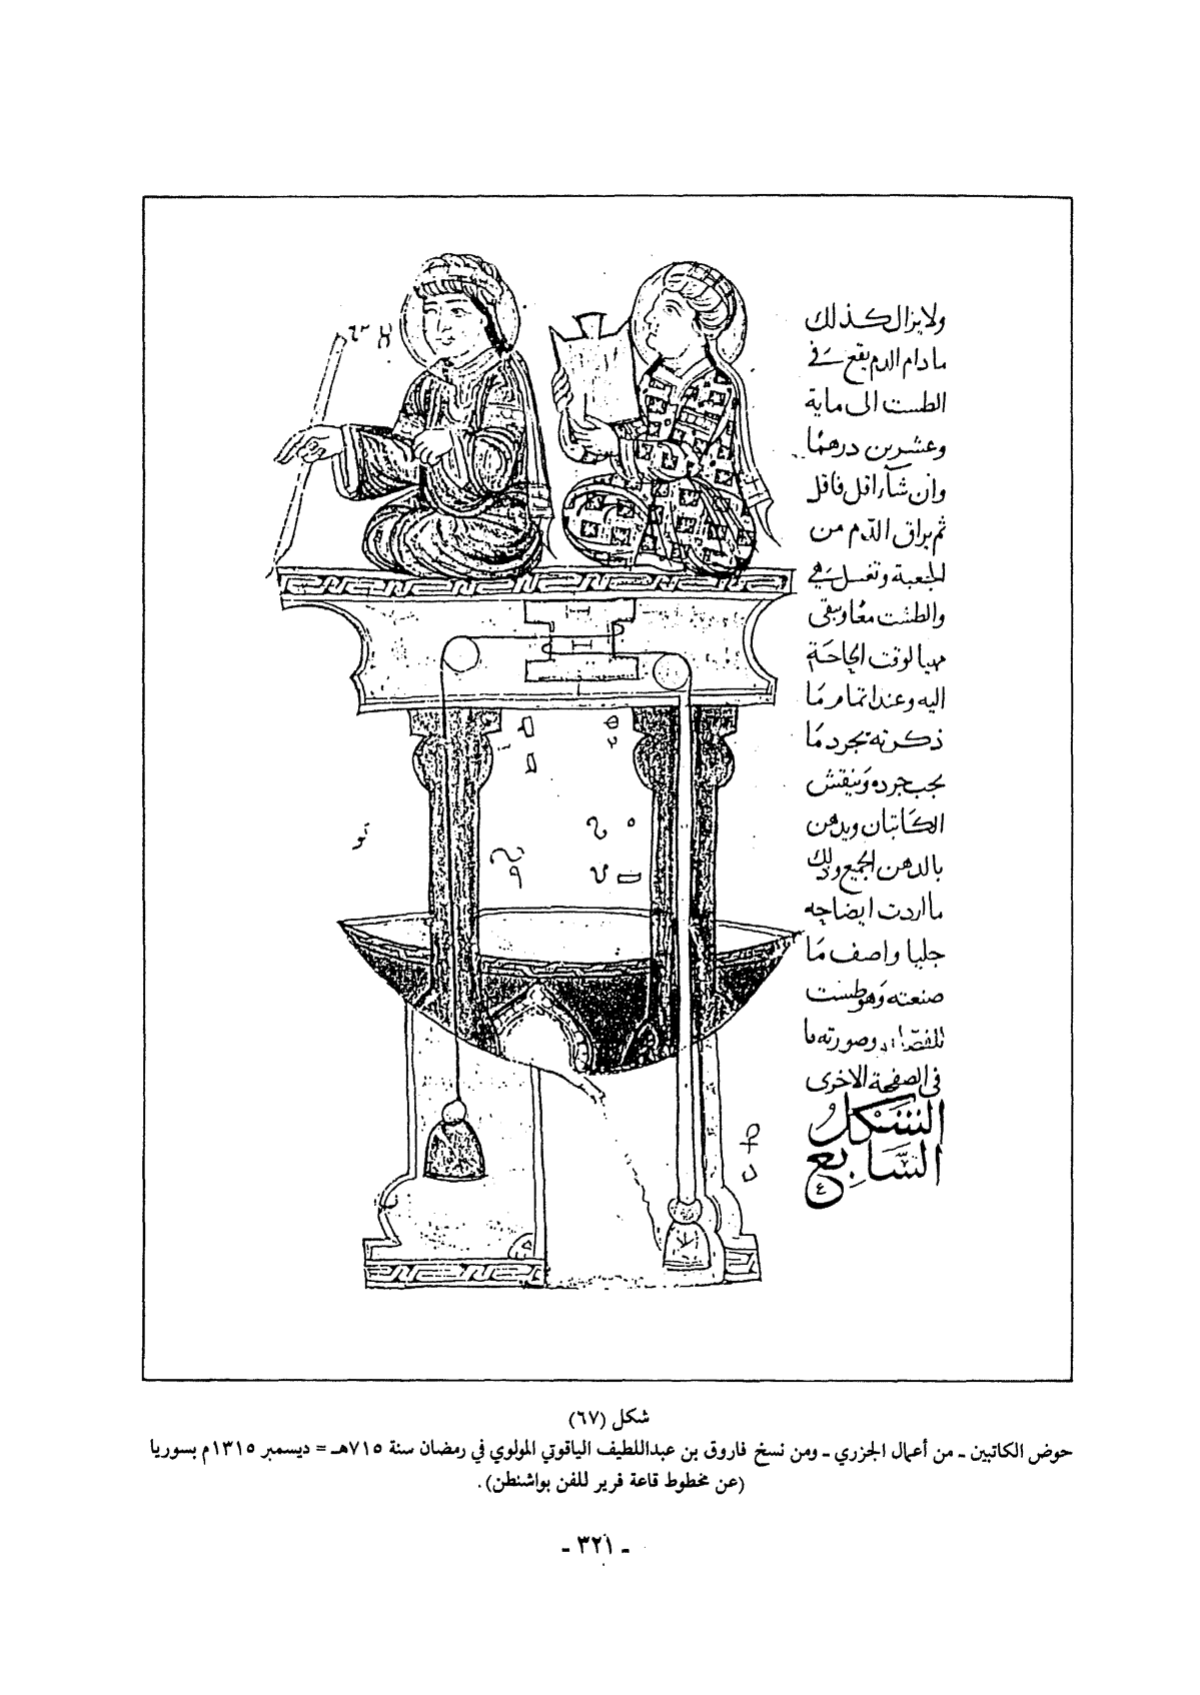 ولا يزال كذلك
مادام الدم يقع في
الطست الى ماية
وعشرين درهمًا
وان شآء اقل فاقل
ثم يراق الدّم من
الجعبة وتغسل هي
والطشت معًا ويبقى
مهيا لوقت الحاجَة
اليه وعند اتمام مَا
ذكرته يجرد مَا
يجب جرده وَينقش
الكَاتبان ويدهن
بالدهن الجميع وذلك
ما اردت ايضاحه
جليا واصف مَا
صنعته وَهو طست
للفصّاد وصورته ما
في الصفحة الاخرى
الشكل
السَّابع
شكل (٦٧)
حوض الكاتبين ـ من أعمال الجزري ـ ومن نسخ فاروق بن عبداللطيف الياقوتي المولوي في رمضان سنة ٧١٥هـ = ديسمبر ١٣١٥م بسوريا
(عن مخطوط قاعة فرير للفن بواشنطن).
ـ ٣٢١ ـ